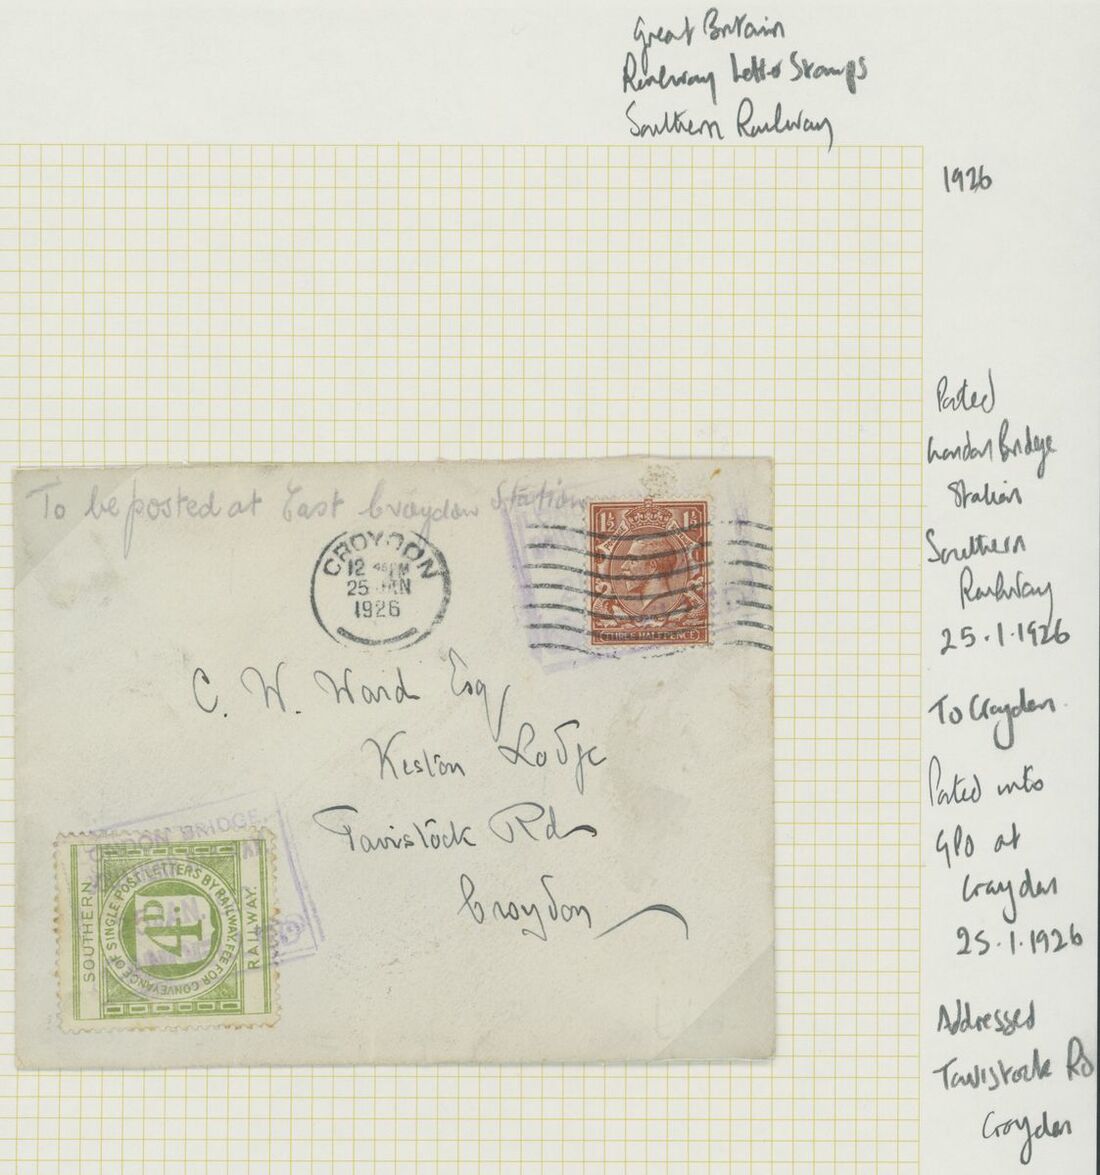 Great Britain
Railway Letter Stamps
Southern Railway
1926
Posted
London Bridge
Station
Southern
Railway
25.1.1926
To Croydon.
Posted into
GPO at
Croydon
25.1.1926
Addressed
Tavistock Rd
Croydon
To be posted at East Croydon Station
CROYDON
12 45 PM
25 JAN
1926
1½ 1½
THREE HALFPENCE
C. W. Ward Esq
Keston Lodge
Tavistock Rd
Croydon
LONDON BRIDGE
SOUTHERN
RAILWAY.
FEE FOR CONVEYANCE OF SINGLE POST LETTERS BY RAILWAY.
4D.